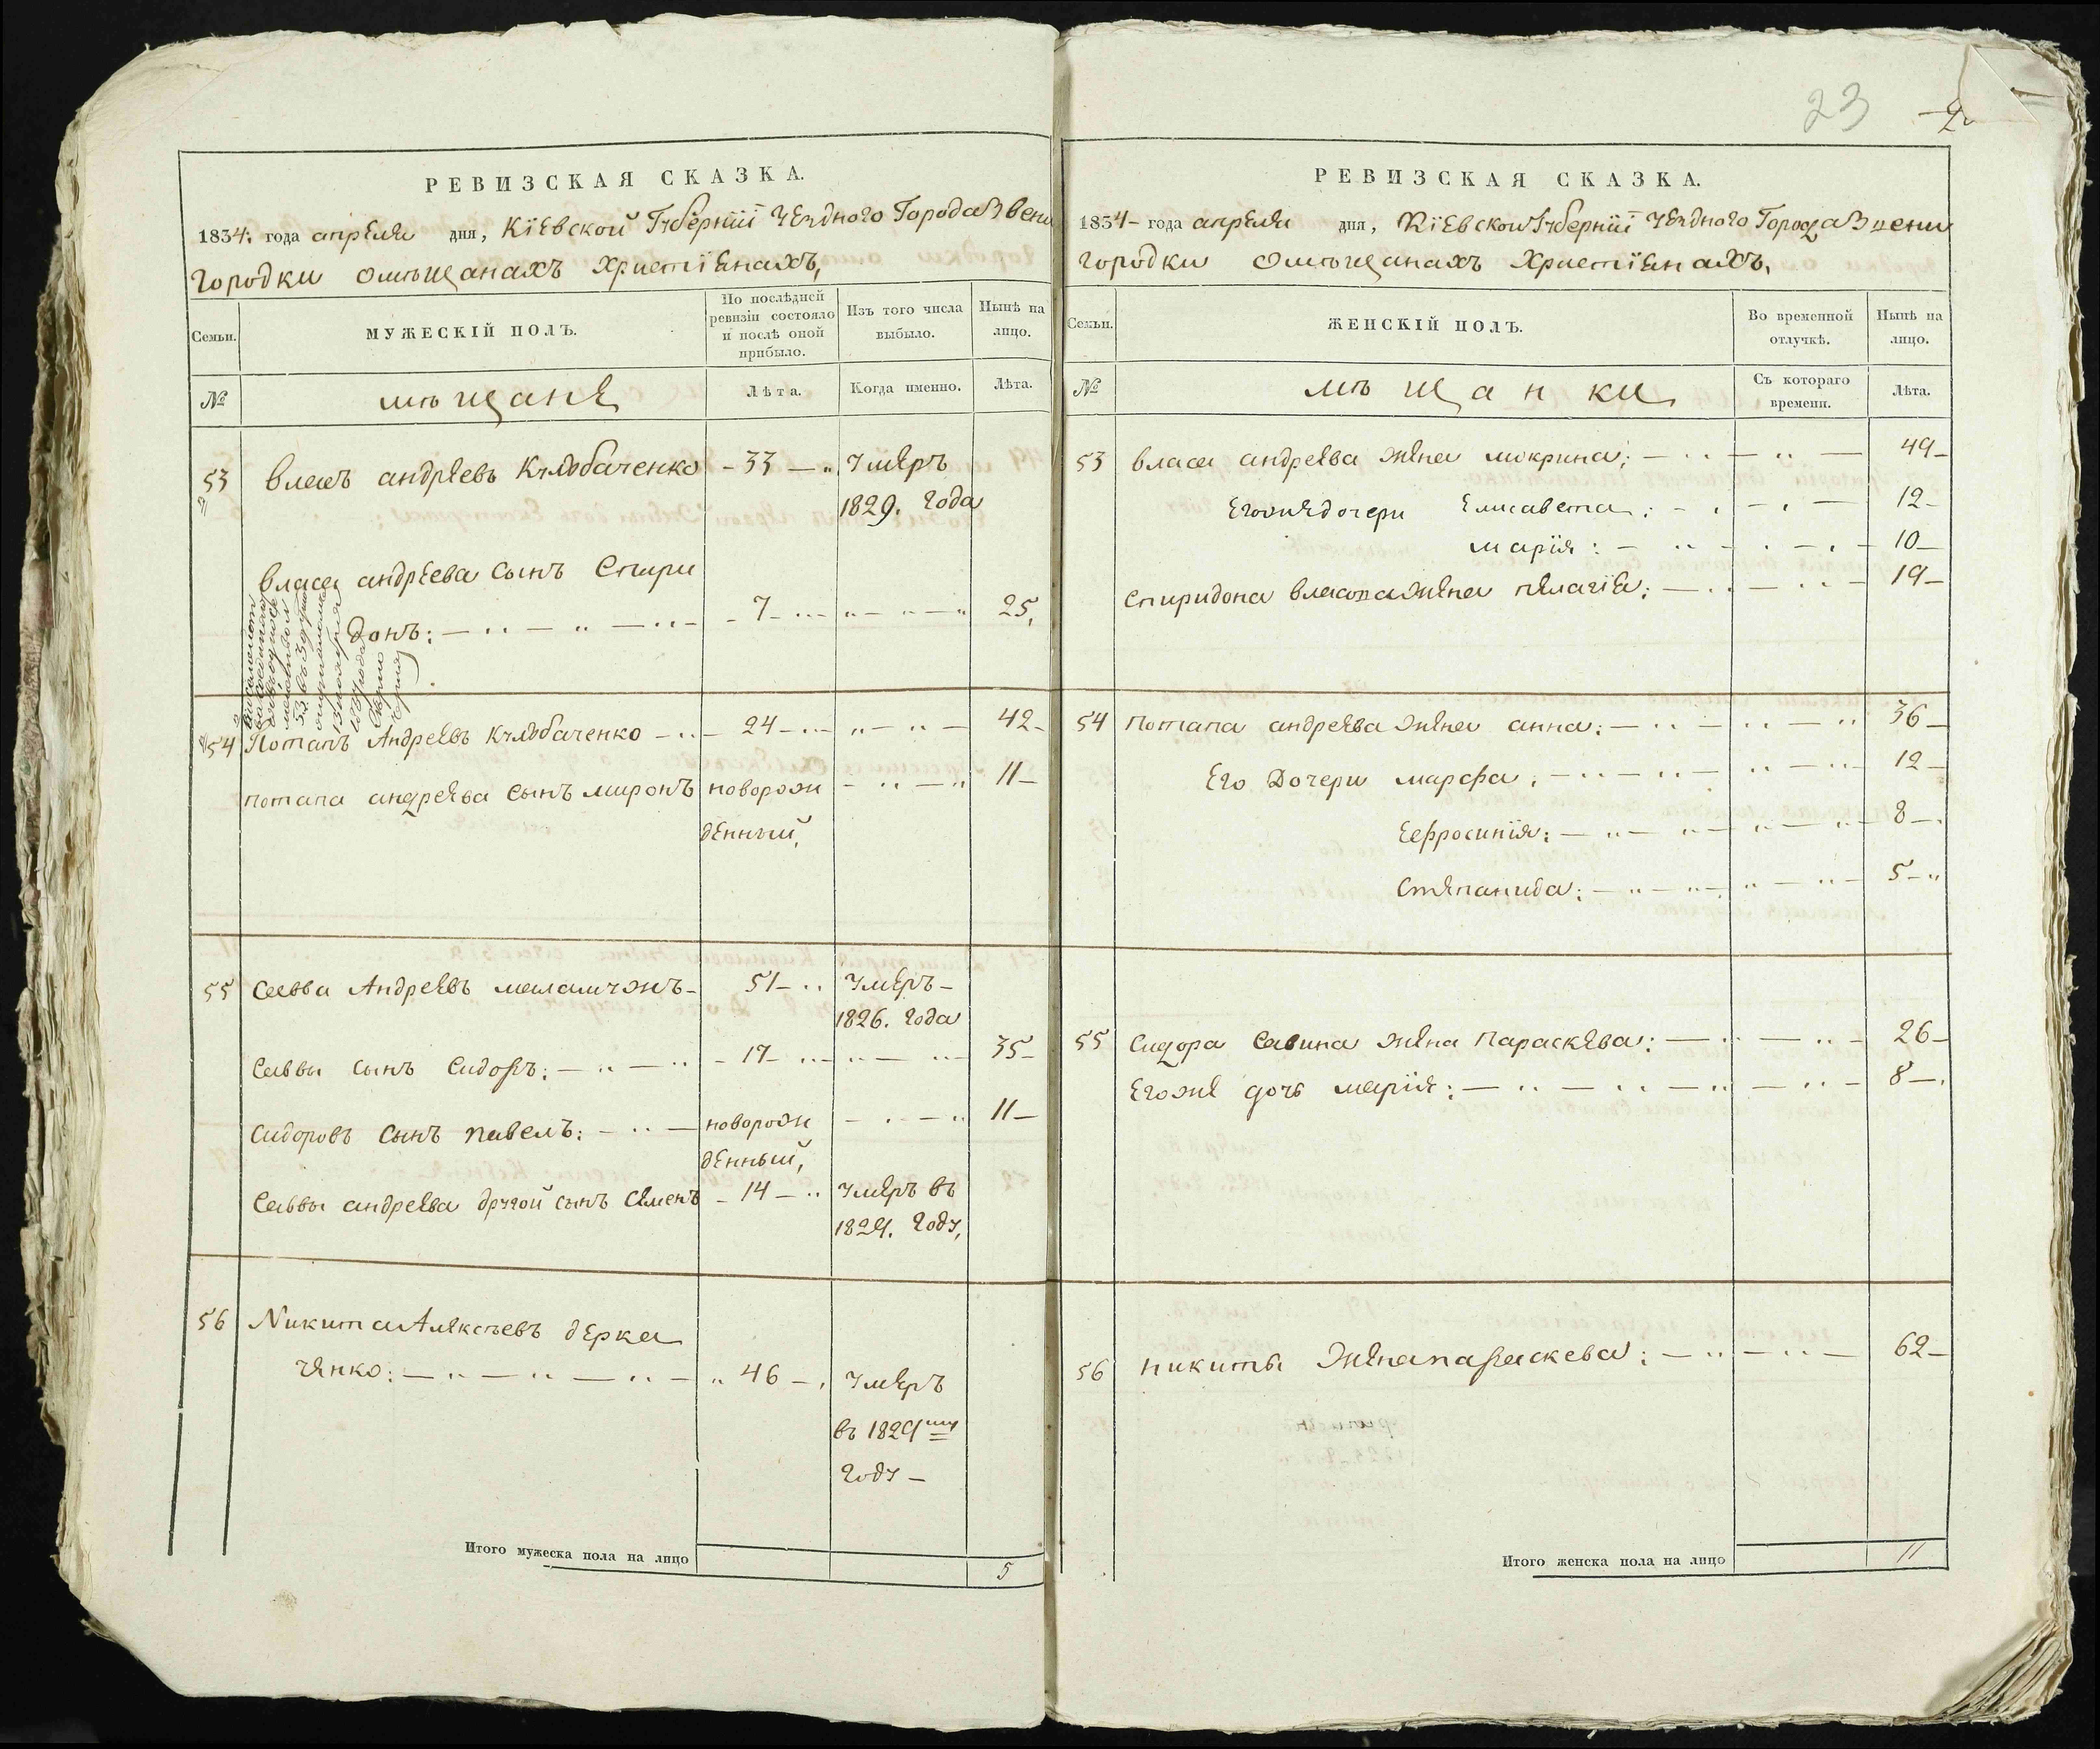 23
РЕВИЗСКАЯ СКАЗКА.
1834. года апреля дня, Кіевской Губерніи Уезднаго Города Звени
городки омѣщанахъ Христіенахъ,
Семьи.
МУЖЕСКІЙ ПОЛЪ.
По послѣдней ревизіи состояло и послѣ оной прибыло.
Изъ того числа выбыло.
Нынѣ на лицо.
№
мѣщане
Лѣта.
Когда именно.
Лѣта.
53 Власъ андреевъ Кулюбаченко - 33 - умеръ
1829. года
власа андреева сынъ Спири
донъ: - 7 - 25,
54 Потапъ Андреевъ Кулюбаченко - 24 - 42 -
потапа андреева сынъ миронъ новорож 11 -
денный,
55 Савва Андреевъ - 51 - умеръ -
1826. года
Саввы сынъ Сидоръ: - 17 - 35 -
Сидоровъ сынъ павелъ: - новорож - 11 -
денный,
Саввы андреева другой сынъ Семенъ - 14 - умеръ въ
1829. году,
56 Никита Алексѣевъ дерка
ченко: - 46 - умеръ
въ 1829му
году -
Итого мужеска пола на лицо 5
РЕВИЗСКАЯ СКАЗКА.
1834 - года апреля дня, Кіевской Губерніи Уезднаго Города Звени
городки омѣщанахъ Христіенахъ,
Семьи.
ЖЕНСКІЙ ПОЛЪ.
Во временной отлучкѣ.
Нынѣ на лицо.
№
мѣщанки
Съ котораго времени.
Лѣта.
53 власа андреева жена мокрина; - 49 -
Егоже дочери Елисавета: - 12 -
марія: - 10 -
Спиридона власова жена пелагіе; - 19 -
54 потапа андреева жена анна: - 36 -
Его Дочери марфа; - 12 -
Ефросинія: - 8 -
Степанида: - 5 -
55 Сидора Савина жена Параскева: - 26 -
Егоже дочь марія: - 8 -
56 никиты жена параскева: - 62 -
Итого женска пола на лицо 11